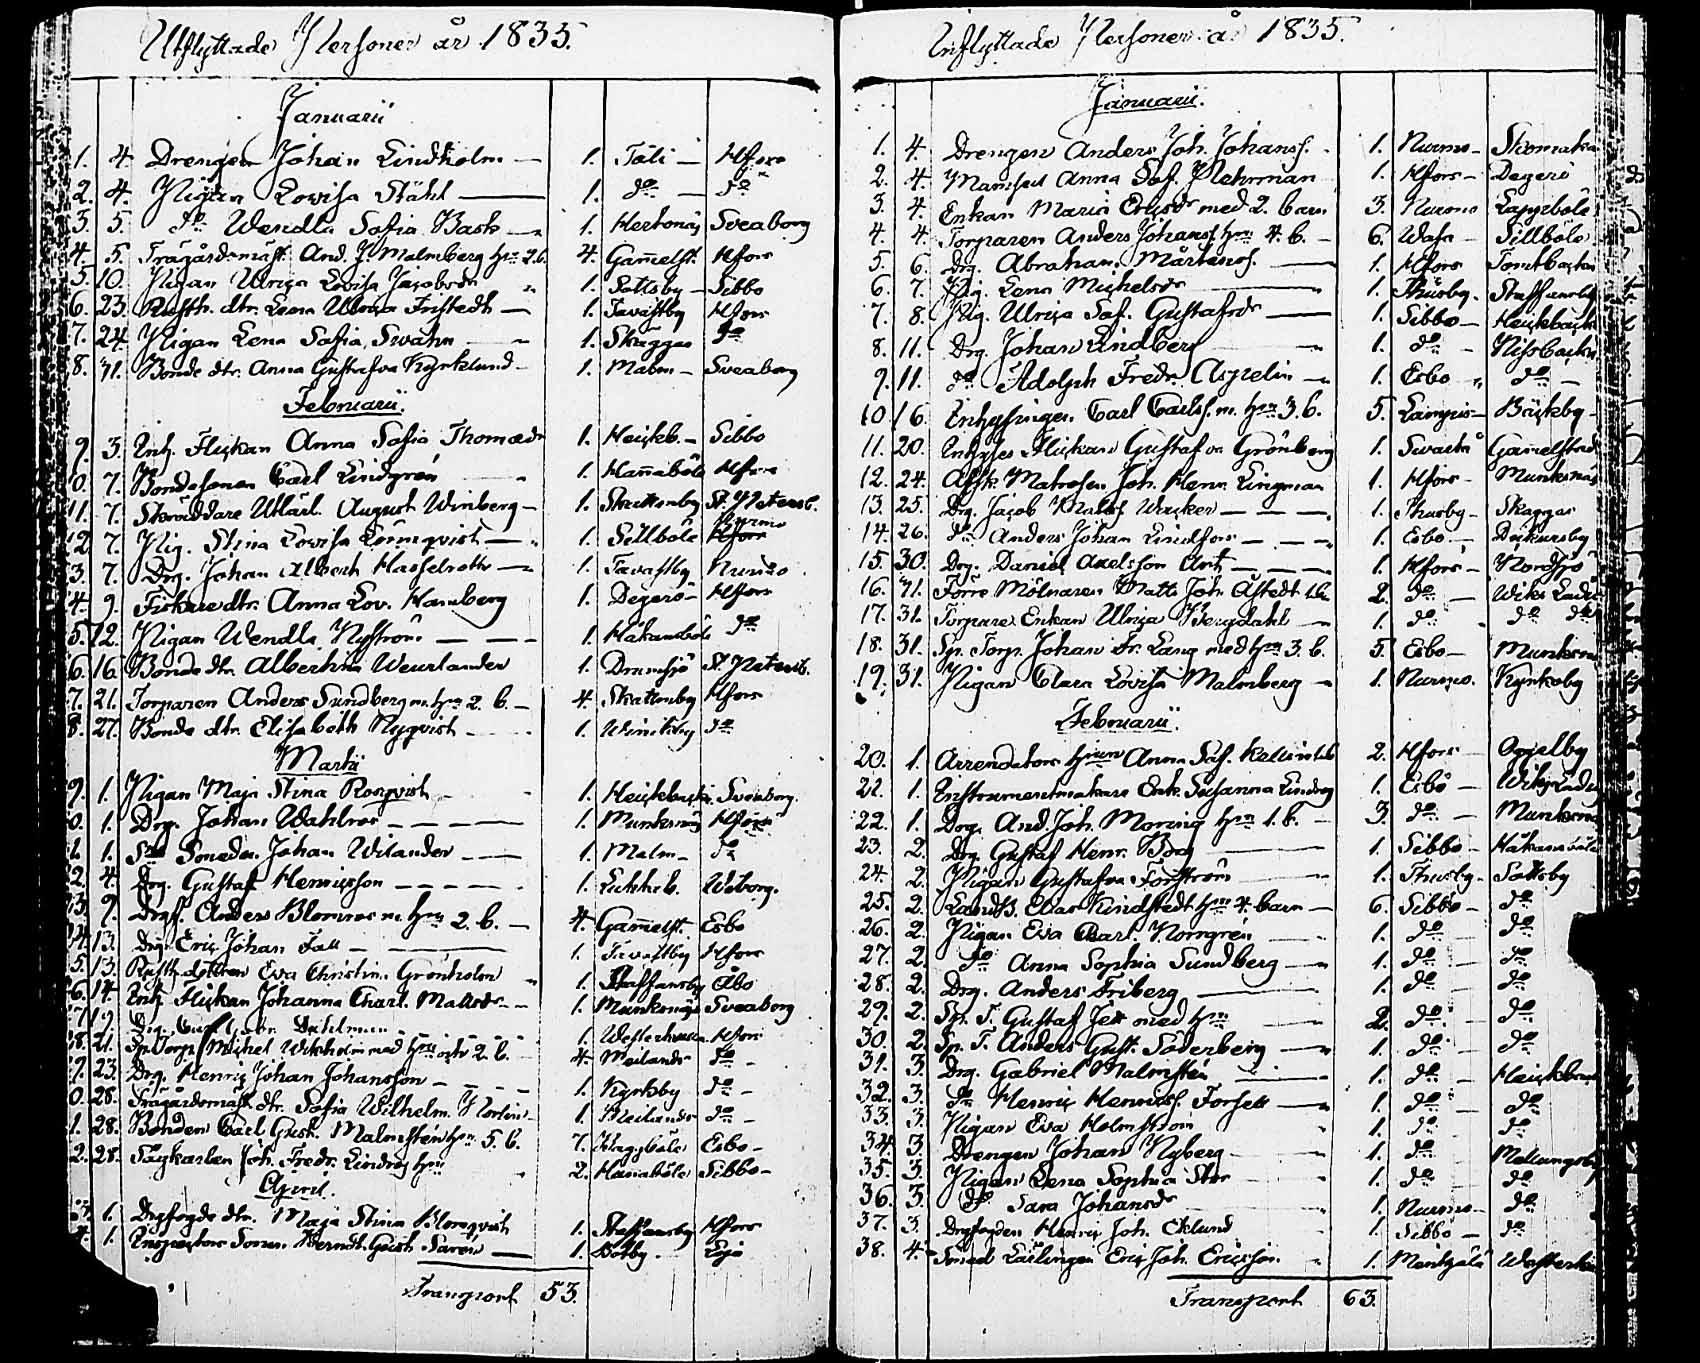 Utflyttade Personer år 1835.
Januarii
1. 4. Drengen Johan Lindholm — 1. Tali — Hfors
2. 4. Pigan Lovisa Ståhl — 1. do — do
3. 5. do Wendla Sofia Bask — 1. Hertonäs Sveaborg
4. 5. Trägårdsmäst. And. J. Malmberg hru 2 b. 4. Gamelst. Hfors
5. 10. Pigan Ulrica Lovisa Jacobsdr 1. Bottsby — Sibbo
6. 23. Rusth. dtr. Lena Ulrica Fristedt — 1. Tavastby Hfors
7. 24. Pigan Lena Sofia Swahn — 1. Skäggas do
8. 31. Bonde dtr. Anna Gustafva Kyrklund — 1. Malm — Sveaborg
Februarii.
9. 3. Enh. Flickan Anna Sofia Thomædr 1. Heickb. — Sibbo
10. 7. Bondesonen Carl Lindgrén 1. Hanaböle Hfors
11. 7. Skräddare Utlärl. August Winberg — 1. Skattmby St. Petersb.
12. 7. Pig. Stina Lovisa Lönnqvist — 1. Sillböle Nurmo
13. 7. Drg. Johan Albert Hasselroth — 1. Tavastby Nurmo
14. 9. Fiskaredtr. Anna Lov. Hamberg 1. Degerö — Hfors
15. 12. Pigan Wendla Nyström — 1. Håkansböle do
16. 16. Bonde dtr. Albertina Weurlander 1. Drumsjö St. Petersb.
17. 21. Torparen Anders Sundberg m. hru 2. b. — 4. Skattmby Hfors
18. 27. Bonde dtr. Elisabeth Nyqvist — 1. Winikby do
Martii
19. 1. Pigan Maja Stina Rosqvist — 1. Heickbacka Sveaborg.
20. 1. Drg. Johan Wahlroos — 1. Munksnäs Hfors
21. 1. Smeden Johan Wilander — 1. Malm — do
22. 4. Drg. Gustaf Henricsson — 1. Lukkb. Wiborg.
23. 9. Drgf. Anders Blomros m. hru 2. b. — 4. Gamelst. Esbo
24. 13. Drg. Eric Johan Fall — 1. Tavastby Hfors
25. 13. Rusth. dottren Eva Christin. Grönholm 1. Staffansby Åbo
26. 14. Enh. Flickan Johanna Charl. Mattsdr — 1. Munksnäs Sveaborg
27. 19. Drg. Carl Gustr. Dahlman 1. Westerkulla Hfors
28. 21. Sp. Torp. Michel Wikholm med hru och 2 b. 4. Meilands do
29. 23. Drg. Henric Johan Johansson — 1. Kyrkby do —
30. 28. Trägårdsmäst. dtr. Sofia Wilhelm. Norlin — 1. Meilands do —
31. 28. Bonden Carl Gust. Malmstén hru 5. b. 7. Waggböle Esbo —
32. 28. Säckkarlen Joh. Fredr. Lindroos hru 2. Hanaböle Sibbo —
April.
33. 1. Drgfogde dtr. Maja Stina Blomqvist 1. Staffansby Hfors
34. 1. Inspectors Sonen Berndt Gust. Sarén — 1. Botby Lojo
Transport 53.
Inflyttade Personer år 1835.
Januarii.
1. 4. Drengen Anders Joh. Johanss. 1. Nurmo — Skomaka
2. 4. Mamsell Anna Sof. Nehrman 1. Hfors — Degerö
3. 4. Enkan Maria Ericsdr med 2. barn 3. Nurmo Lappböle
4. 4. Torparen Anders Johanss. hru 4. b. — 6. Wasa — Sillböle
5. 6. Drg. Abraham Mårtenss. — 1. Hfors Tomtbacka
6. 7. Pig. Lena Michelsdr — 1. Thusby. Staffansby
7. 8. Pig. Ulrica Sof. Gustafsdr — 1. Sibbo — Heickbacka
8. 11. Drg. Johan Lindberg 1. do — Nissbacka
9. 11. do Adolph Fredr. Aspelin — 1. Esbo do —
10. 16. Enhysingen Carl Carlss. m. hru 3. b. 5. Lampis — Bäckby —
11. 20. Enhyses Flickan Gustafva Grönberg 1. Svartå Gamelstad
12. 24. Afsk. Matrosen Joh. Henr. Lingman 1. Hfors — Munksnäs
13. 25. Drg. Jacob Matss. Wacker — 1. Thusby — Skaggas
14. 26. do Anders Johan Lindfors — 1. Esbo — Dickursby
15. 30. Drg. Daniel Axelsson Ant — 1. Hfors — Nordsjö
16. 31. Förre Mölnaren Matts Joh. Åstedt 1.b. 2. do — Wiks Ladu
17. 31. Torpare Enkan Ulrica Bergdahl — 1. do do do
18. 31. Sp. Torp. Johan Er. Lång med hru 3. b. 5. Esbo — Munksnä
19. 31. Pigan Clara Lovisa Malmberg — 1. Nurmo. Kyrkoby
Februarii.
20. 1. Arrendators hrun Anna Sof. 2. Hfors Oggelby
21. 1. Instrumentmakare Enk. Susanna Lindroos 1. Esbo — Wiks Ladu
22. 1. Drg. And. Joh. Moring hru 1. b. — 3. do — Munksnä
23. 2. Drg. Gustaf Henr. Borg — 1. Sibbo — Håkansböle
24. 2. Pigan Gustafva Forsström 1. Thusby — Sottsby
25. 2. Landtb. Elias Kindstedt hru 4. barn — 6. Sibbo — do
26. 2. Pigan Eva Charl. Norrgren 1. do — do
27. 2. do Anna Sophia Sundberg — 1. do — do
28. 2. Drg. Anders Friberg — 1. do do
29. 2. Sp. T. Gustaf Jett med hru 2. do — do
30. 2. Sp. T. Anders Gust. Söderberg — 1. do — do
31. 3. Drg. Gabriel Malmstén 1. do — Heickbacka
32. 3. do Henric Henricss. Forsell — 1. do — do
33. 3. Pigan Eva Holmström 1. do — do
34. 3. Drengen Johan Nyberg — 1. do Mellungsby
35. 3. Pigan Lena Sophia Stor — 1. do do
36. 3. do Sara Johansdr 1. Nurmo — do
37. 3. Drgfogden Henric Joh. Eklund 1. Sibbo — do
38. 4. Smed Lärlingen Eric Joh. Ericsson 1. Mentzälä Westerku
Transport 63.